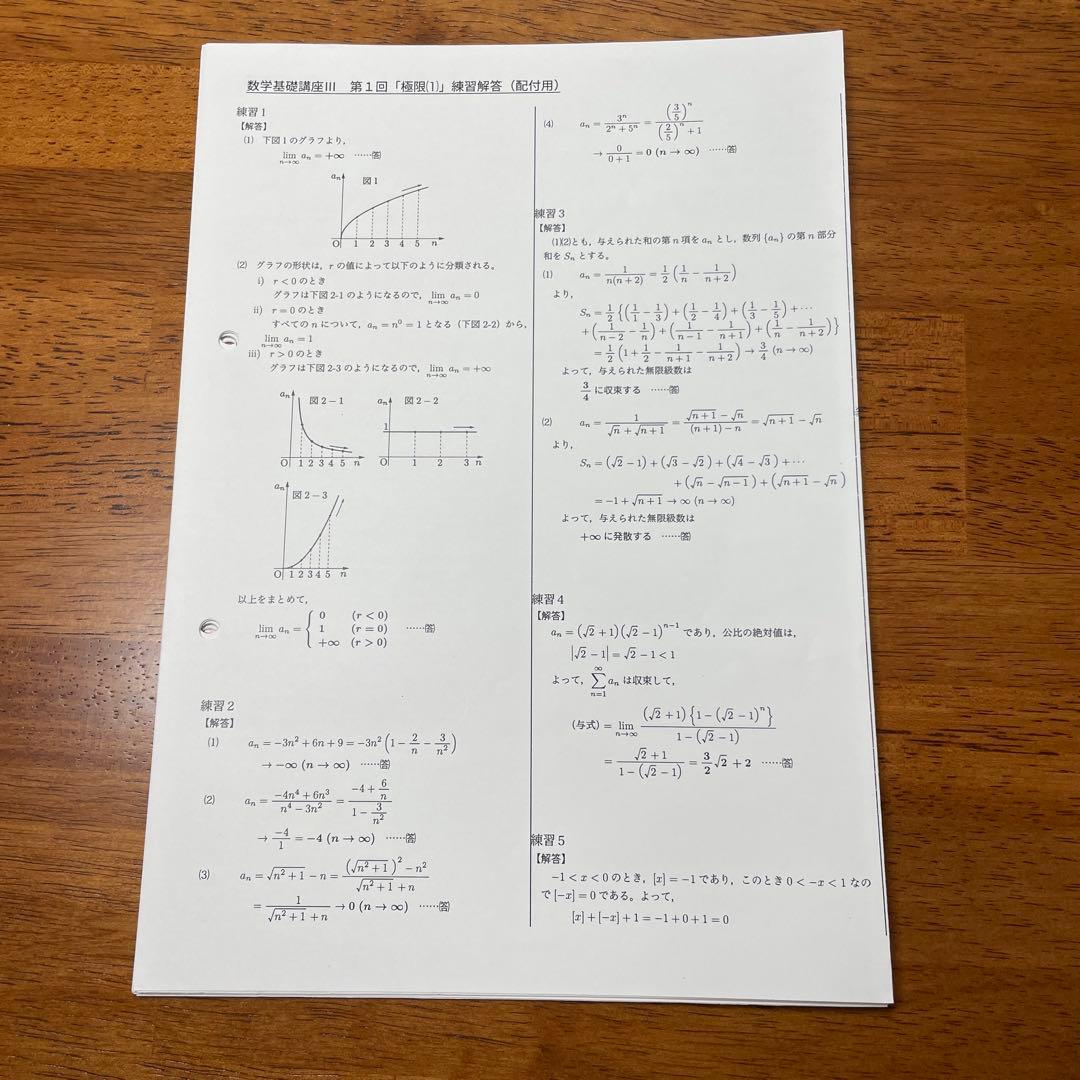 数学基礎講座III　第1回「極限(1)」練習解答（配付用）
練習1
【解答】
(1)　下図1のグラフより，
lim_{n→∞} a_n = +∞　……答
a_n
図1
O 1 2 3 4 5 n
(2)　グラフの形状は，r の値によって以下のように分類される。
i)　r < 0 のとき
グラフは下図2-1のようになるので，lim_{n→∞} a_n = 0
ii)　r = 0 のとき
すべての n について，a_n = n^0 = 1 となる（下図2-2）から，
lim_{n→∞} a_n = 1
iii)　r > 0 のとき
グラフは下図2-3のようになるので，lim_{n→∞} a_n = +∞
a_n 図2-1
O 1 2 3 4 5 n
a_n 図2-2
1
O 1 2 3 n
a_n 図2-3
O 1 2 3 4 5 n
以上をまとめて，
lim_{n→∞} a_n = { 0 (r < 0)
1 (r = 0)　……答
+∞ (r > 0)
練習2
【解答】
(1)　a_n = -3n^2 + 6n + 9 = -3n^2 (1 - 2/n - 3/n^2)
→ -∞ (n → ∞)　……答
(2)　a_n = (-4n^4 + 6n^3)/(n^4 - 3n^2) = (-4 + 6/n)/(1 - 3/n^2)
→ -4/1 = -4 (n → ∞)　……答
(3)　a_n = √(n^2+1) - n = ((√(n^2+1))^2 - n^2)/(√(n^2+1) + n)
= 1/(√(n^2+1) + n) → 0 (n → ∞)　……答
(4)　a_n = 3^n/(2^n + 5^n) = (3/5)^n/((2/5)^n + 1)
→ 0/(0+1) = 0 (n → ∞)　……答
練習3
【解答】
(1)(2)とも，与えられた和の第 n 項を a_n とし，数列 {a_n} の第 n 部分
和を S_n とする。
(1)　a_n = 1/(n(n+2)) = 1/2 (1/n - 1/(n+2))
より，
S_n = 1/2 {(1/1 - 1/3) + (1/2 - 1/4) + (1/3 - 1/5) + ⋯
+ (1/(n-2) - 1/n) + (1/(n-1) - 1/(n+1)) + (1/n - 1/(n+2))}
= 1/2 (1 + 1/2 - 1/(n+1) - 1/(n+2)) → 3/4 (n → ∞)
よって，与えられた無限級数は
3/4 に収束する　……答
(2)　a_n = 1/(√n + √(n+1)) = (√(n+1) - √n)/((n+1) - n) = √(n+1) - √n
より，
S_n = (√2 - 1) + (√3 - √2) + (√4 - √3) + ⋯
+ (√n - √(n-1)) + (√(n+1) - √n)
= -1 + √(n+1) → ∞ (n → ∞)
よって，与えられた無限級数は
+∞ に発散する　……答
練習4
【解答】
a_n = (√2 + 1)(√2 - 1)^{n-1} であり，公比の絶対値は，
|√2 - 1| = √2 - 1 < 1
よって，∑_{n=1}^{∞} a_n は収束して，
(与式) = lim_{n→∞} (√2 + 1){1 - (√2 - 1)^n}/(1 - (√2 - 1))
= (√2 + 1)/(1 - (√2 - 1)) = 3/2 √2 + 2　……答
練習5
【解答】
-1 < x < 0 のとき，[x] = -1 であり，このとき 0 < -x < 1 なの
で [-x] = 0 である。よって，
[x] + [-x] + 1 = -1 + 0 + 1 = 0